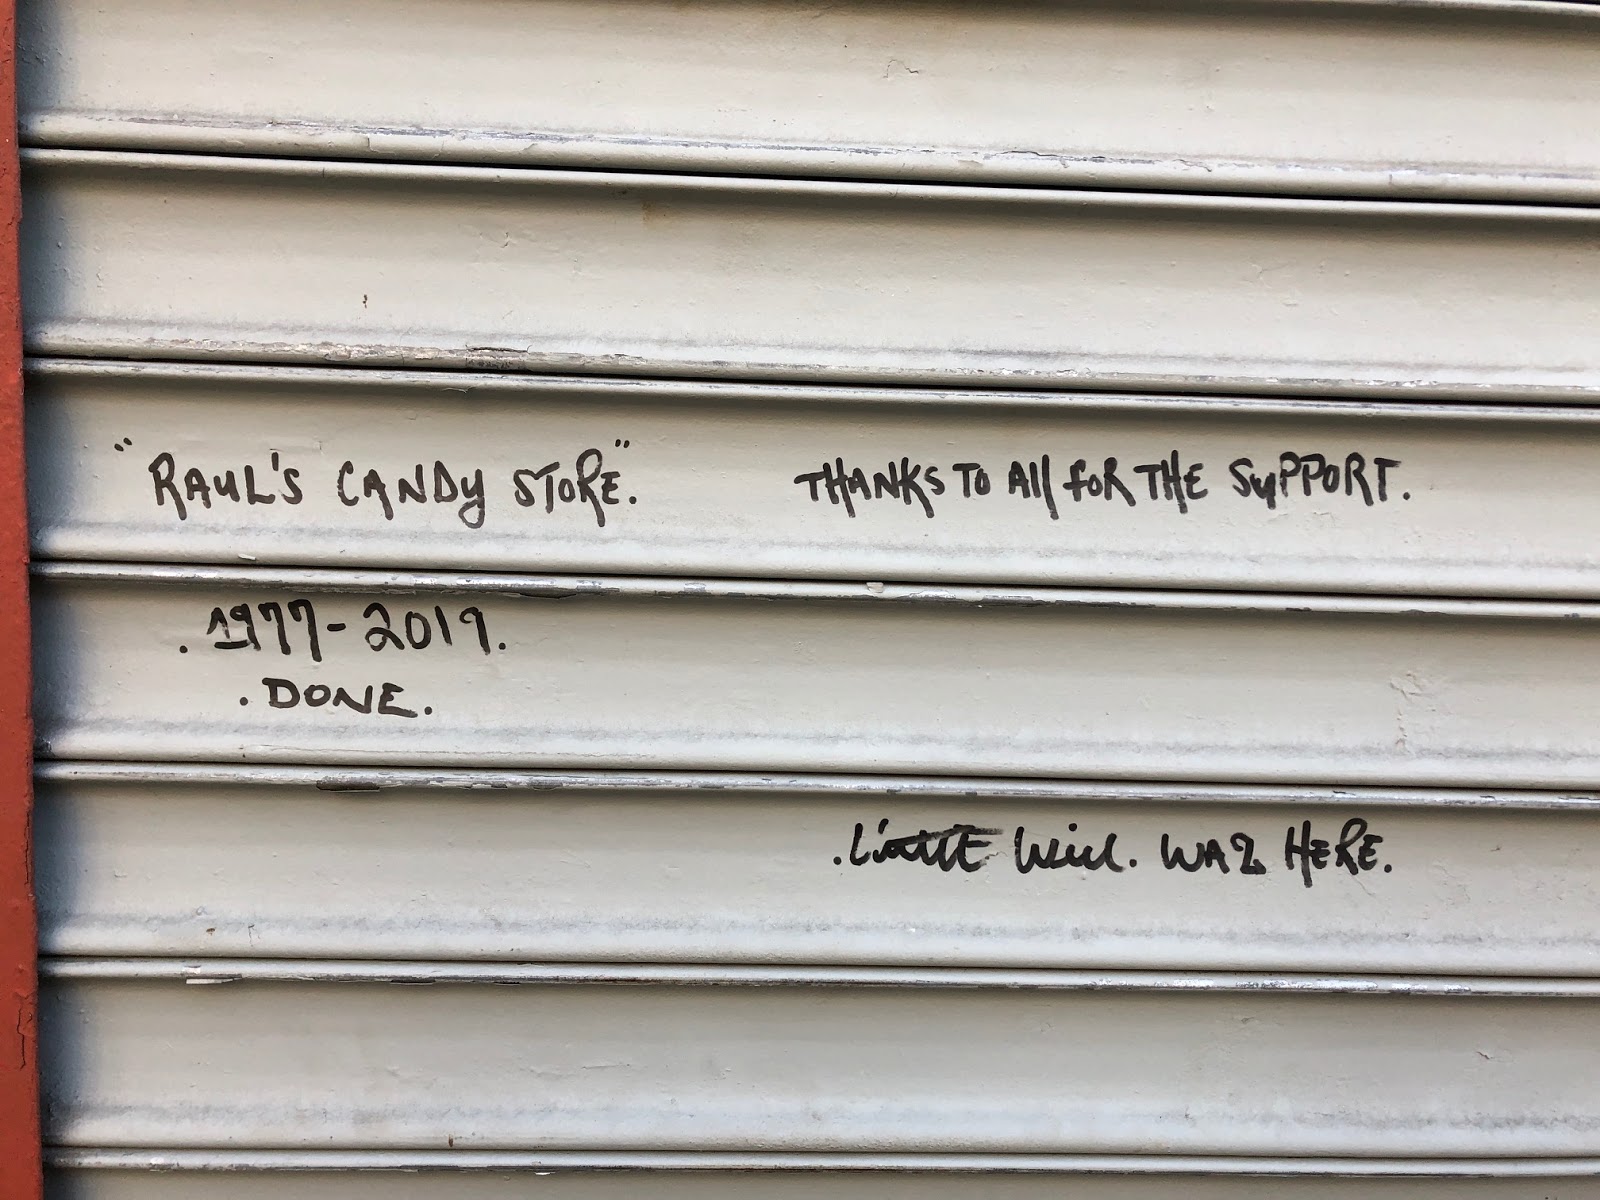 "RAUL'S CANDY STORE."
THANKS TO All foR THE SuPPORT.
. 1977-2019.
. DONE.
. LittlE Will. WAZ HERE.